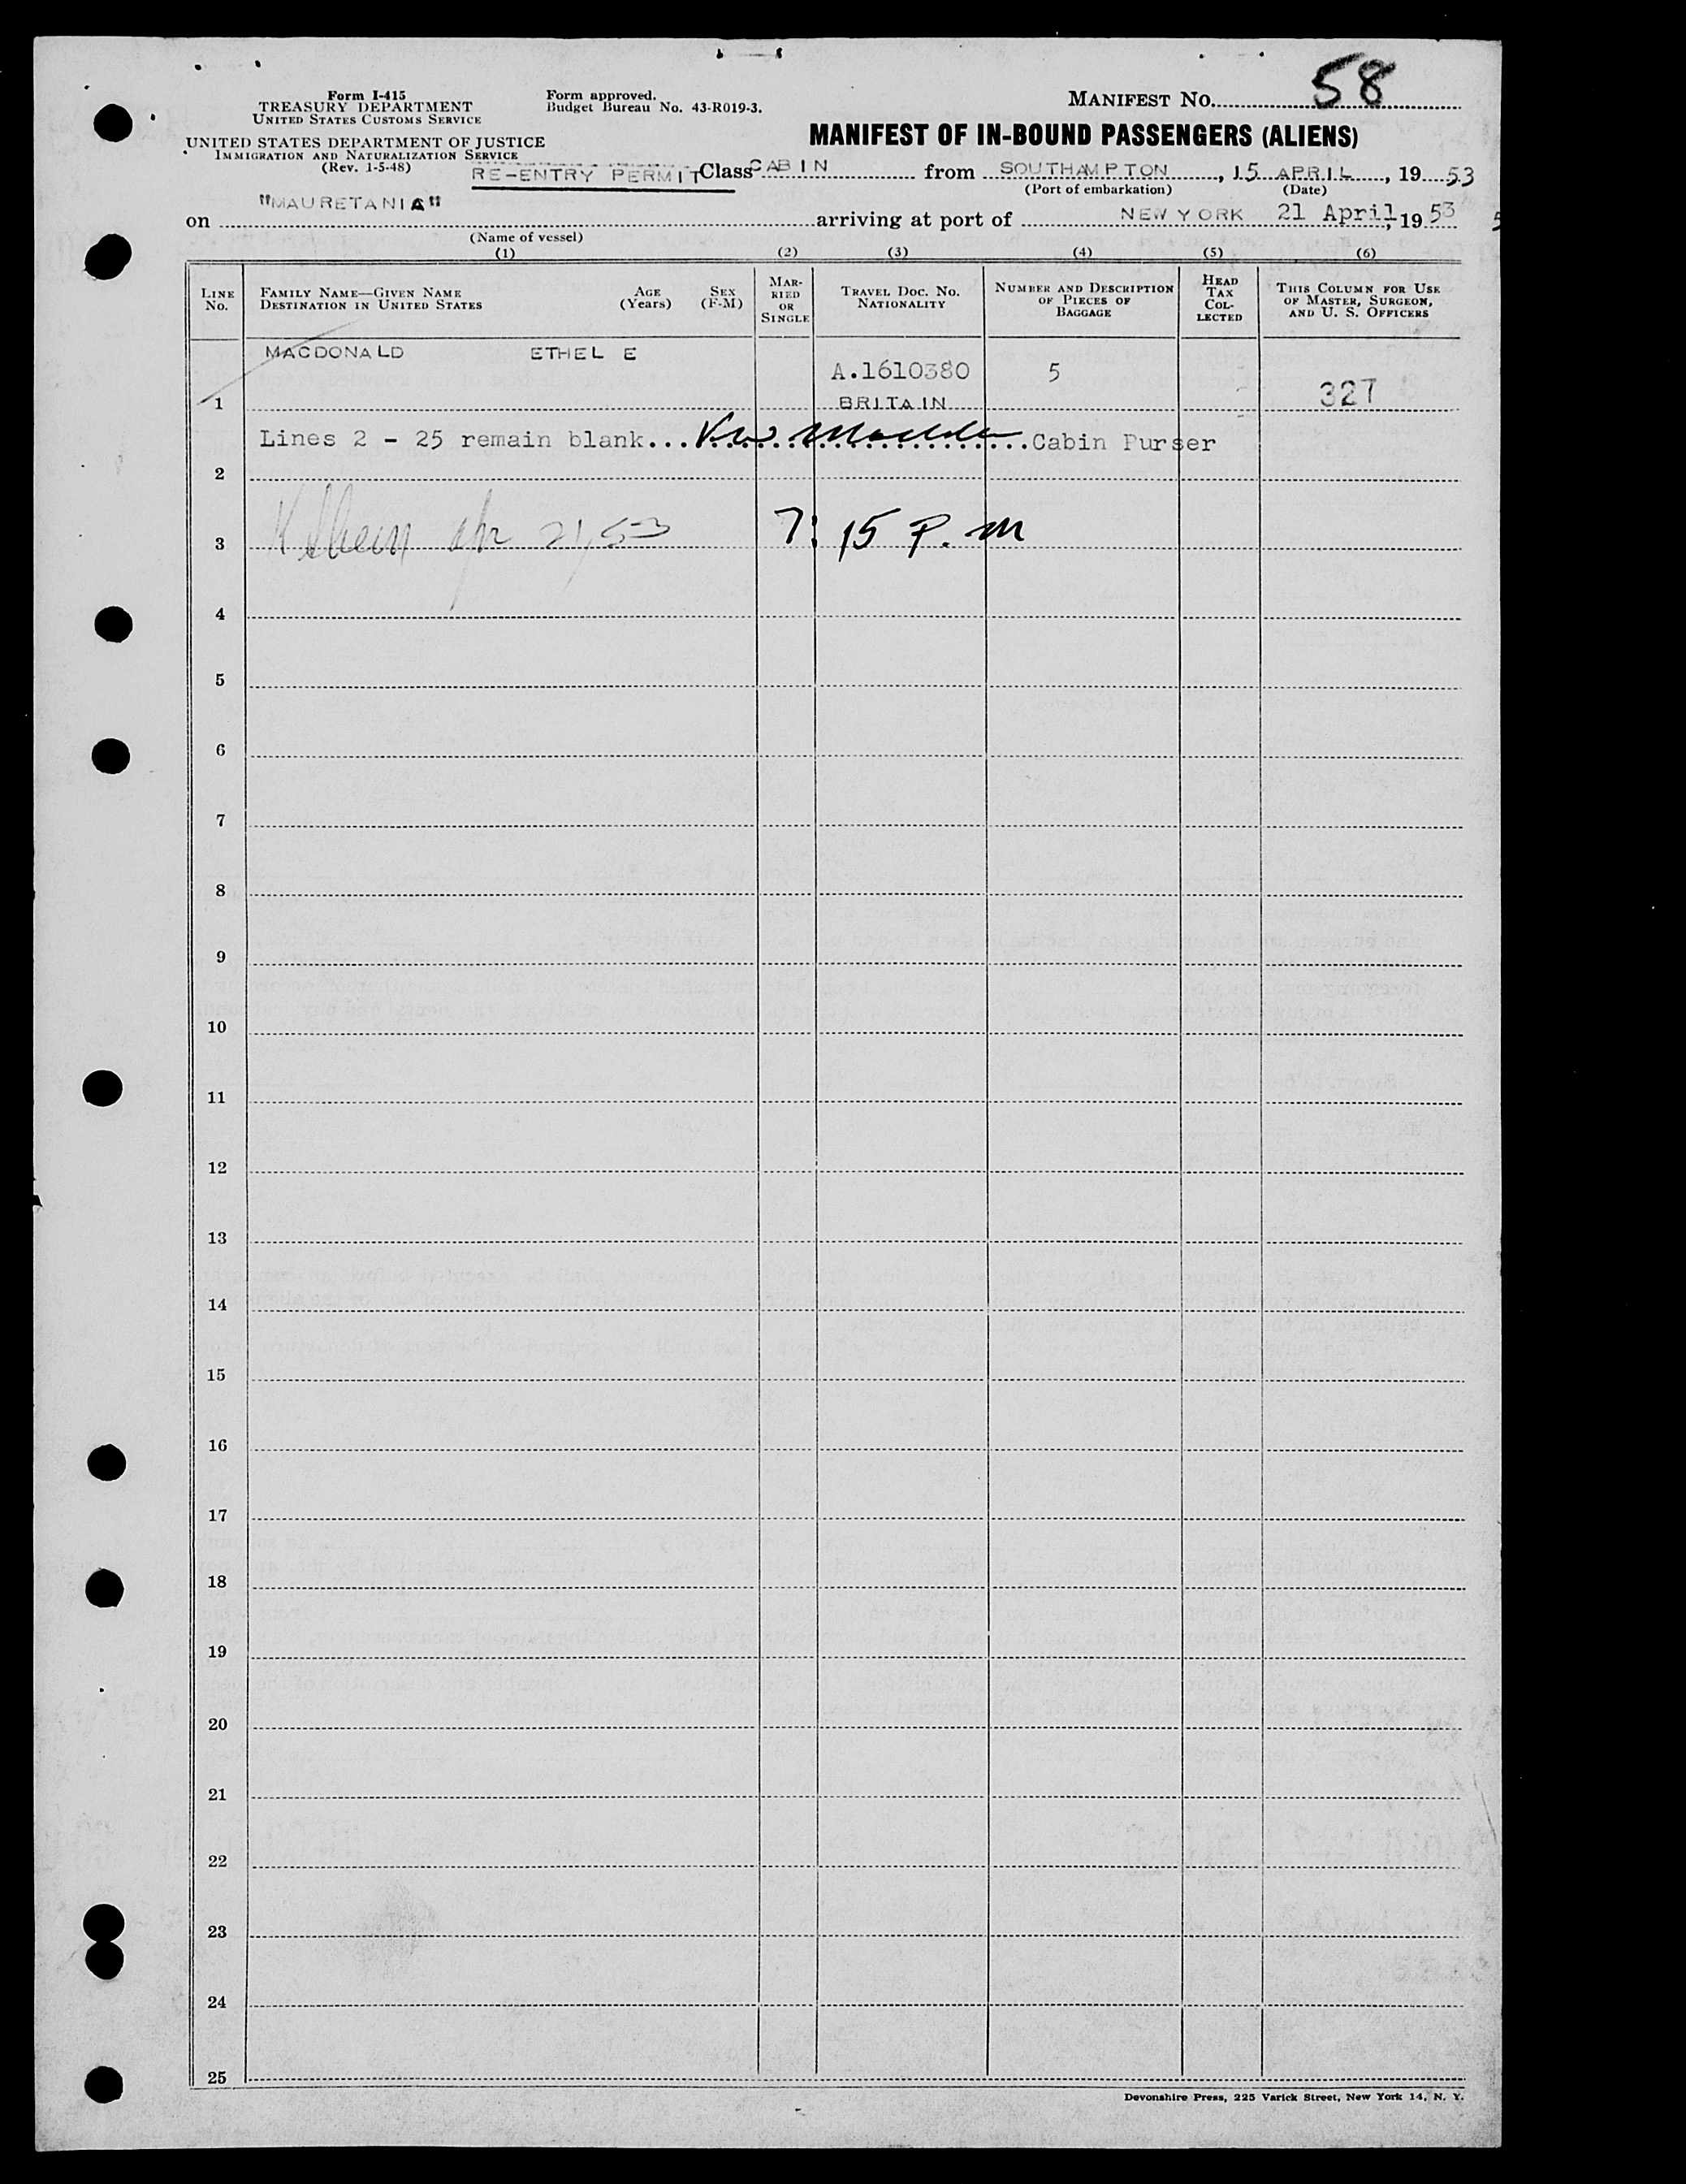 58
Form I-415
TREASURY DEPARTMENT
UNITED STATES CUSTOMS SERVICE
Form approved.
Budget Bureau No. 43-R019-3.
MANIFEST No.
UNITED STATES DEPARTMENT OF JUSTICE
IMMIGRATION AND NATURALIZATION SERVICE
(Rev. 1-5-48)
MANIFEST OF IN-BOUND PASSENGERS (ALIENS)
RE-ENTRY PERMIT Class CABIN from SOUTHAMPTON, 15 APRIL, 1953
(Port of embarkation) (Date)
on "MAURETANIA" arriving at port of NEW YORK 21 April, 1953
(Name of vessel)
(1) (2) (3) (4) (5) (6)
LINE No.
FAMILY NAME—GIVEN NAME
DESTINATION IN UNITED STATES
AGE (Years)
SEX (F-M)
MARRIED OR SINGLE
TRAVEL DOC. No. NATIONALITY
NUMBER AND DESCRIPTION OF PIECES OF BAGGAGE
HEAD TAX COLLECTED
THIS COLUMN FOR USE OF MASTER, SURGEON, AND U. S. OFFICERS
MACDONALD ETHEL E
A.1610380 5
1 BRITAIN 327
Lines 2 - 25 remain blank... Cabin Purser
2
3 Apr 21, 53 7:15 P.M
4
5
6
7
8
9
10
11
12
13
14
15
16
17
18
19
20
21
22
23
24
25
Devonshire Press, 225 Varick Street, New York 14, N. Y.